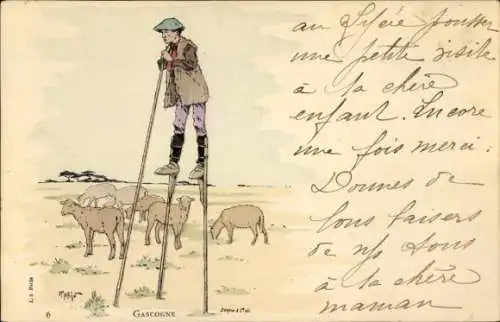 au Lycée pousser
une petite visite
à ta chère
enfant. Encore
une fois merci.
Donnes de
bons baisers
de nos tous
à ta chère
maman
6
GASCOGNE